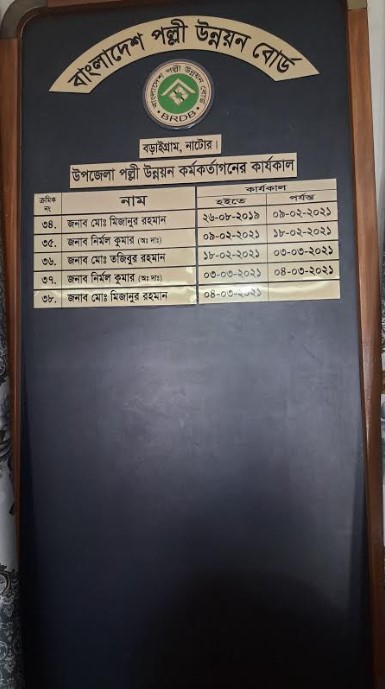 বাংলাদেশ পল্লী উন্নয়ন বোর্ড
বাংলাদেশ পল্লী উন্নয়ন বোর্ড
BRDB
বড়াইগ্রাম, নাটোর।
উপজেলা পল্লী উন্নয়ন কর্মকর্তাগনের কার্যকাল
ক্রমিক নং নাম কার্যকাল
হইতে পর্যন্ত
৩৪. জনাব মোঃ মিজানুর রহমান ২৬-০৮-২০১৯ ০৯-০২-২০২১
৩৫. জনাব নির্মল কুমার (অঃ দাঃ) ০৯-০২-২০২১ ১৮-০২-২০২১
৩৬. জনাব মোঃ তজিবুর রহমান ১৮-০২-২০২১ ০৩-০৩-২০২১
৩৭. জনাব নির্মল কুমার (অঃ দাঃ) ০৩-০৩-২০২১ ০৪-০৩-২০২১
৩৮. জনাব মোঃ মিজানুর রহমান ০৪-০৩-২০২১